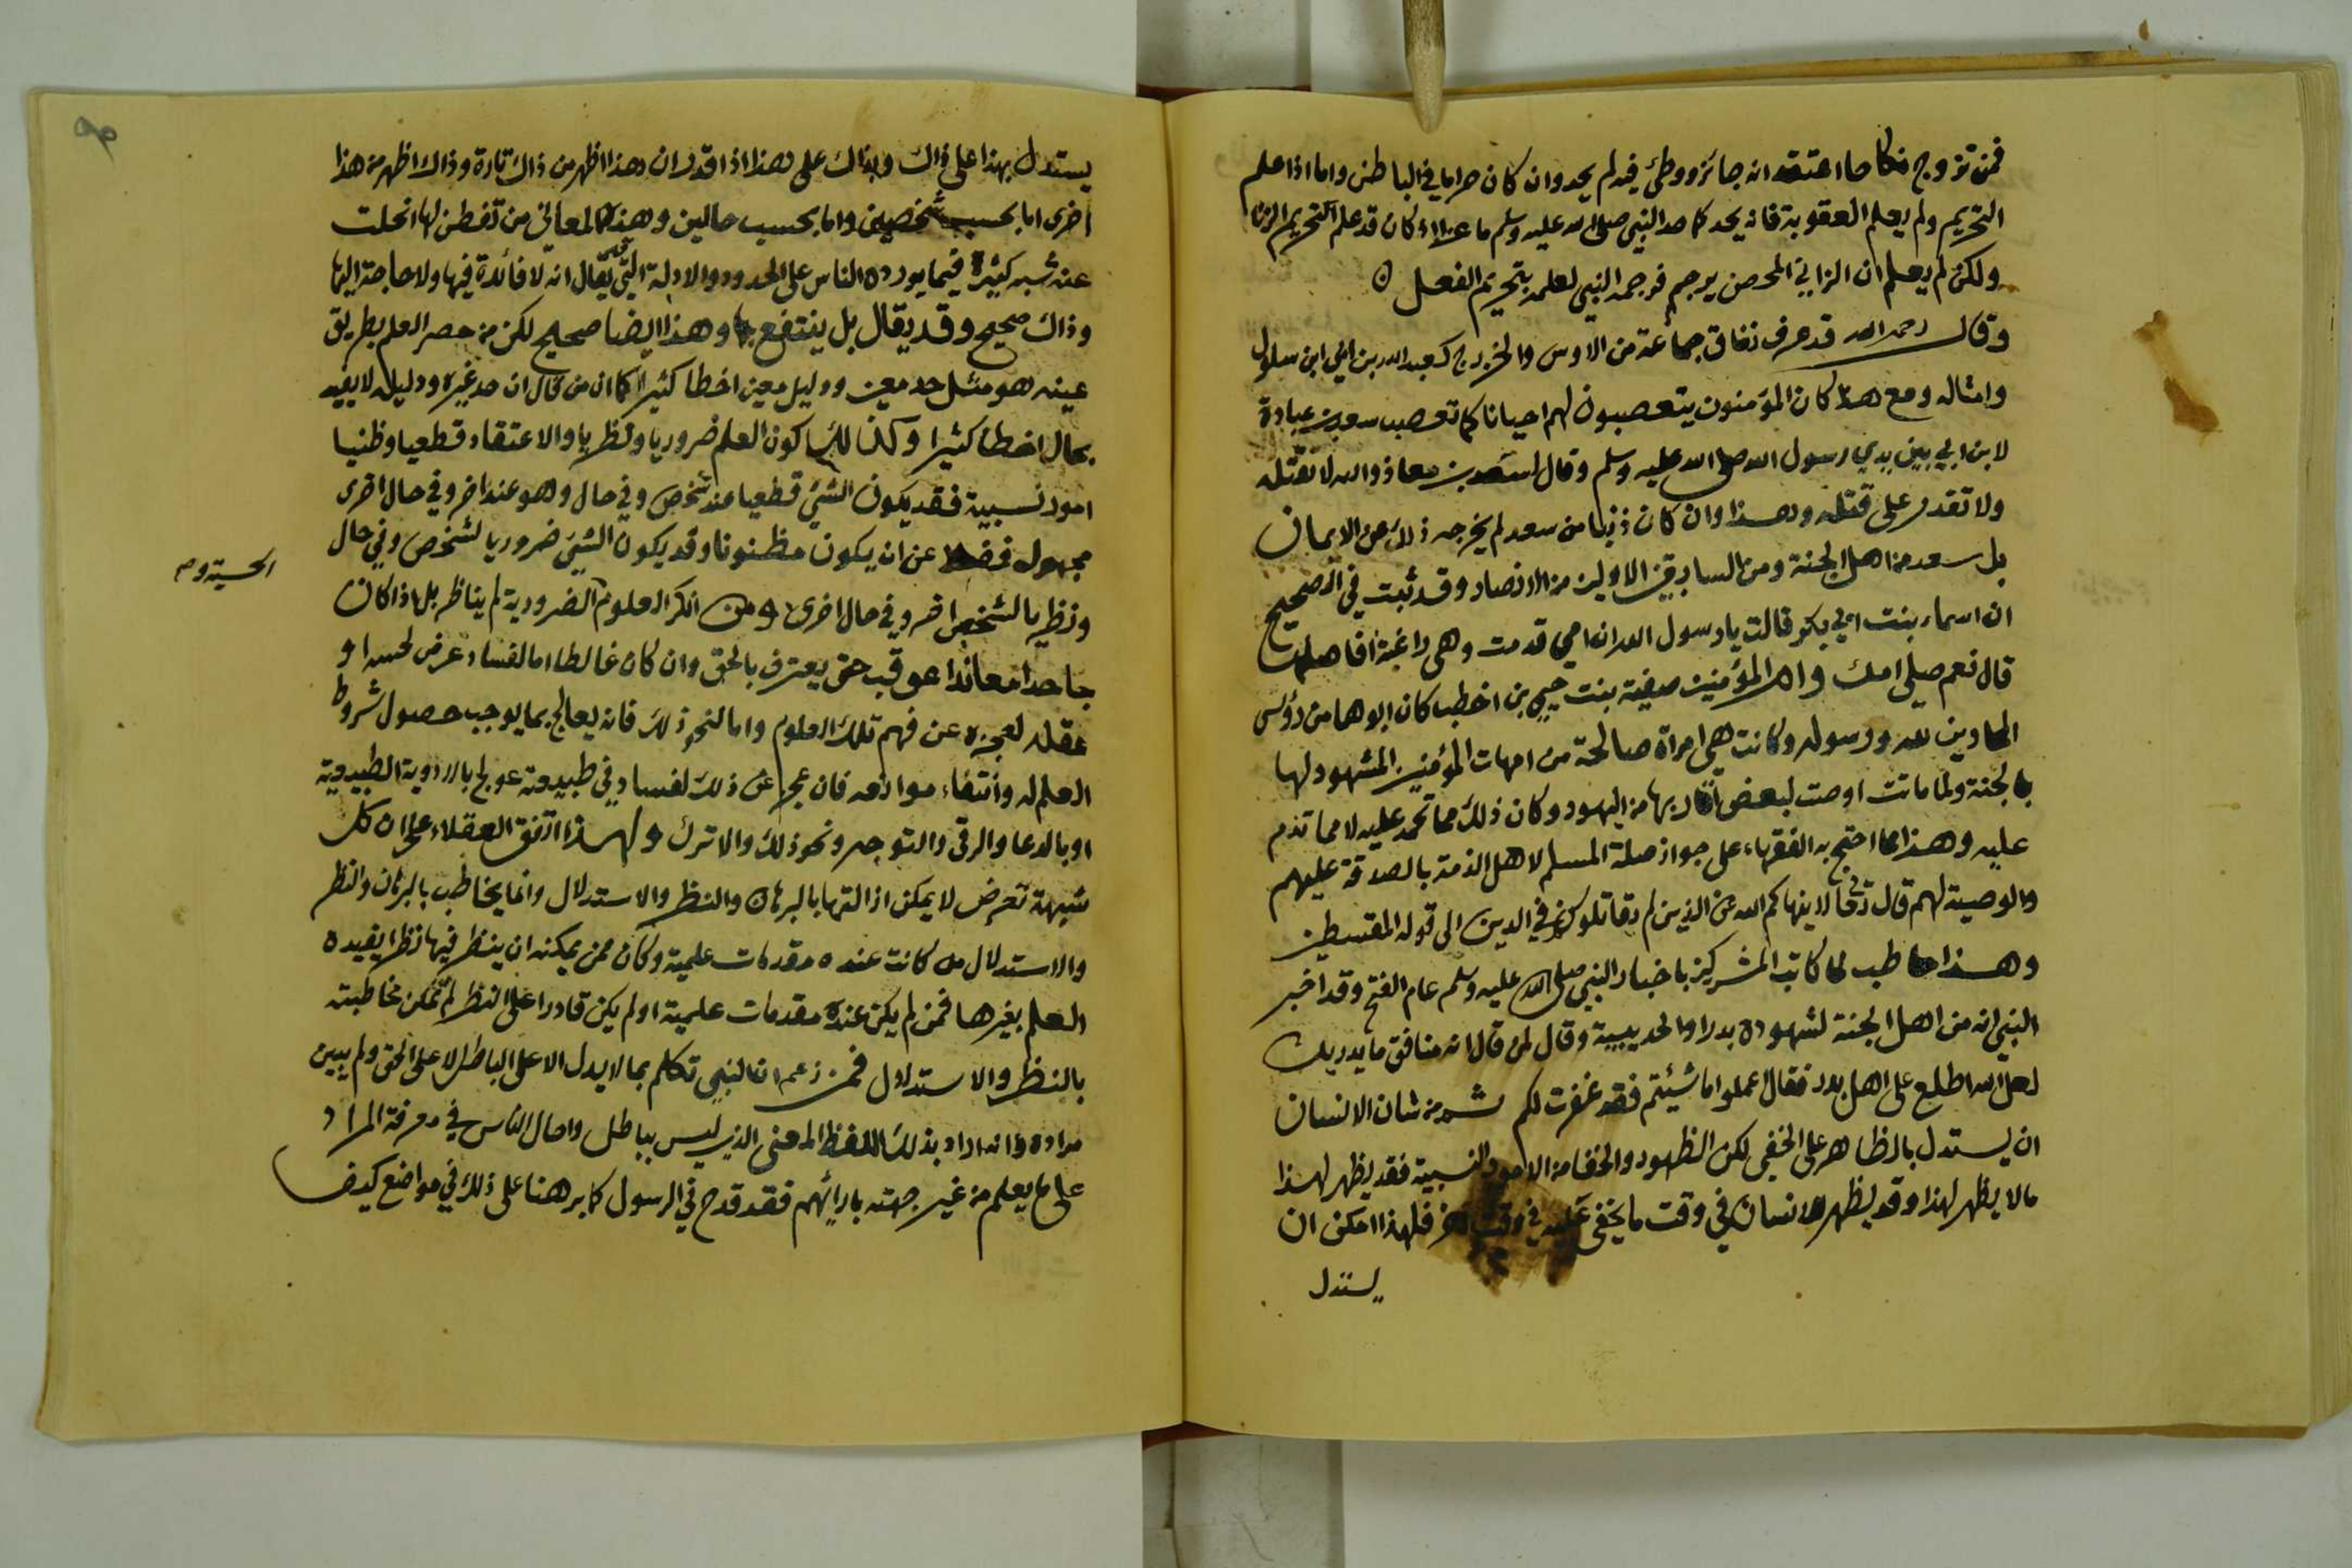 فمن تزوج نكاحا اعتقد انه جائز ووطئ فيه لم يحد وان كان حراما في الباطن واما اذا علم
التحريم ولم يعلم العقوبة فانه يحد كما حد النبي صلى الله عليه وسلم ماعزا اذ كان قد علم تحريم الزنا
ولكن لم يعلم ان الزاني المحصن يرجم فرجمه النبي لعلمه بتحريم الفعل ٥
وقال رحمه الله قد عرف نفاق جماعة من الاوس والخزرج كعبد الله بن ابي ابن سلول
وامثاله ومع هذا كان المؤمنون يتعصبون لهم احيانا كما تعصب سعد بن عبادة
لابن ابي بين يدي رسول الله صلى الله عليه وسلم وقال لسعد بن معاذ والله لا تقتله
ولا تقدر على قتله وهذا وان كان ذنبا من سعد لم يخرجه ذلك عن الايمان
بل سعد من اهل الجنة ومن السابقين الاولين من الانصار وقد ثبت في الصحيح
ان اسماء بنت ابي بكر قالت يا رسول الله ان امي قدمت وهي راغبة افاصلها
قال نعم صلي امك وام المؤمنين صفية بنت حيي بن اخطب كان ابوها من رؤس
المحادين لله ورسوله وكانت هي امراة صالحة من امهات المؤمنين المشهود لها
بالجنة ولما ماتت اوصت لبعض اقاربها من اليهود وكان ذلك مما تحمد عليه لا مما تذم
عليه وهذا مما احتج به الفقهاء على جواز صلة المسلم لاهل الذمة بالصدقة عليهم
والوصية لهم قال تعالى لا ينهاكم الله عن الذين لم يقاتلوكم في الدين الى قوله المقسطين
وهذا حاطب لما كاتب المشركين باخبار النبي صلى الله عليه وسلم عام الفتح وقد اخبر
النبي انه من اهل الجنة لشهوده بدرا والحديبية وقال لمن قال انه منافق ما يدريك
لعل الله اطلع على اهل بدر فقال اعملوا ما شيئتم فقد غفرت لكم من شان الانسان
ان يستدل بالظاهر على الخفي لكن الظهور والخفا من الامور النسبية فقد يظهر لهذا
مالا يظهر لهذا وقد يظهر للانسان في وقت ما يخفى عليه في وقت اخر فلهذا امكن ان
يستدل
٩٥
يستدل بهذا على ذاك وبذاك على هذا اذا قدر ان هذا اظهر من ذاك تارة وذاك اظهر من هذا
اخرى اما بحسب شخصين واما بحسب حالين وهذه المعاني من تفطن لها انحلت
عنه شبه كثيرة فيما يورده الناس على الحدود والادلة التي يقال انه لا فائدة فيها ولا حاجة اليها
وذاك صحيح وقد يقال بل ينتفع بها وهذا ايضا صحيح لكن من حصر العلم بطريق
عينه هو مثل حد معين ودليل معين اخطا كثيرا كما ان من قال ان حد غيره ودليله لا يفيد
بحال اخطا كثيرا وكذلك كون العلم ضروريا ونظريا والاعتقاد قطعيا وظنيا
امور نسبية فقد يكون الشئ قطعيا عند شخص وفي حال وهو عند اخر وفي حال اخرى
مجهول فضلا عن ان يكون مظنونا وقد يكون الشئ ضروريا لشخص وفي حال
ونظريا لشخص اخر وفي حال اخرى ومن انكر العلوم الضرورية لم يناظر بل اذا كان
الحسية
جاحدا معاندا عوقب حتى يعترف بالحق وان كان غالطا اما لفساد عرض لحسه او
عقله لعجزه عن فهم تلك العلوم واما لنحو ذلك فانه يعالج بما يوجب حصول شروط
العلم له وانتفاء موانعه فان عجز عن ذلك لفساد في طبيعته عولج بالادوية الطبيعية
او بالدعا والرقى والتوجه ونحو ذلك والا ترك ولهذا اتفق العقلاء على ان كل
شبهة تعرض لا يمكن ازالتها بالبرهان والنظر والاستدلال وانما يخاطب بالبرهان والنظر
والاستدلال من كانت عنده مقدمات علمية وكان ممن يمكنه ان ينظر فيها نظرا يفيده
العلم بغيرها فمن لم يكن عنده مقدمات علمية او لم يكن قادرا على النظر لم تمكن مخاطبته
بالنظر والاستدلال فمن زعم ان النبي تكلم بما لا يدل الا على الباطل لا على الحق ولم يبين
مراده وانه اراد بذلك اللفظ المعنى الذي ليس بباطل واحال الناس في معرفة المراد
على ما يعلم من غير جهته بارائهم فقد قدح في الرسول كما برهنا على ذلك في مواضع كيف